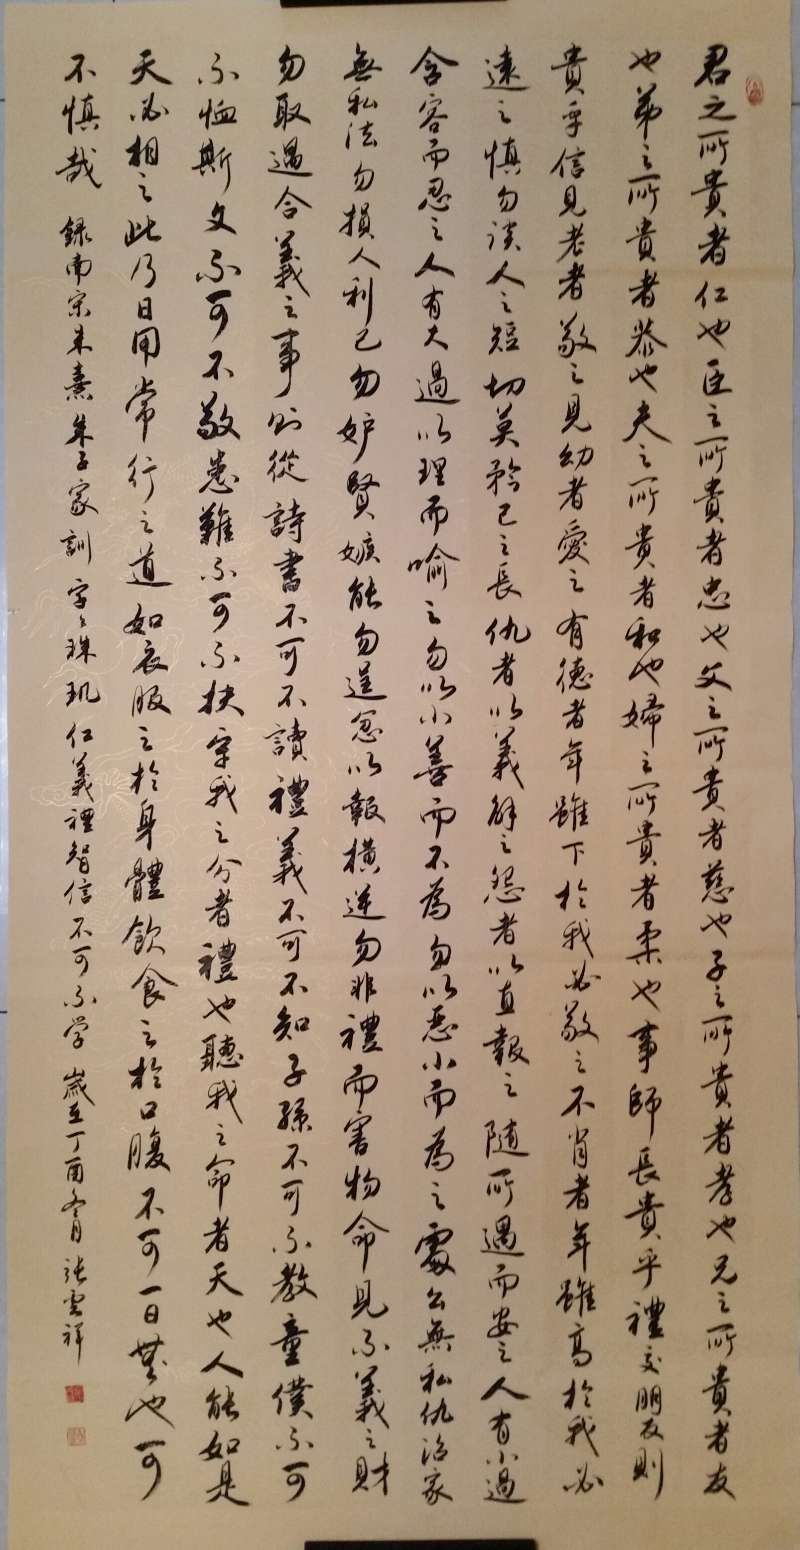 君之所貴者仁也臣之所貴者忠也父之所貴者慈也子之所貴者孝也兄之所貴者友
也弟之所貴者恭也夫之所貴者和也婦之所貴者柔也事師長貴乎禮交朋友則
貴乎信見老者敬之見幼者愛之有德者年雖下於我必敬之不肖者年雖高於我必
遠之慎勿談人之短切莫矜己之長仇者以義解之怨者以直報之隨所遇而安之人有小過
含容而忍之人有大過以理而喻之勿以小善而不為勿以惡小而為之處公無私仇治家
無私法勿損人利己勿妒賢嫉能勿逞忿以報橫逆勿非禮而害物命見不義之財
勿取遇合義之事則從詩書不可不讀禮義不可不知子孫不可不教童僕不可
不恤斯文不可不敬患難不可不扶守我之分者禮也聽我之命者天也人能如是
天必相之此乃日用常行之道如衣服之於身體飲食之於口腹不可一日無也可
不慎哉 錄南宋朱熹朱子家訓字字珠玑仁義禮智信不可不学歲在丁酉冬月張雲祥